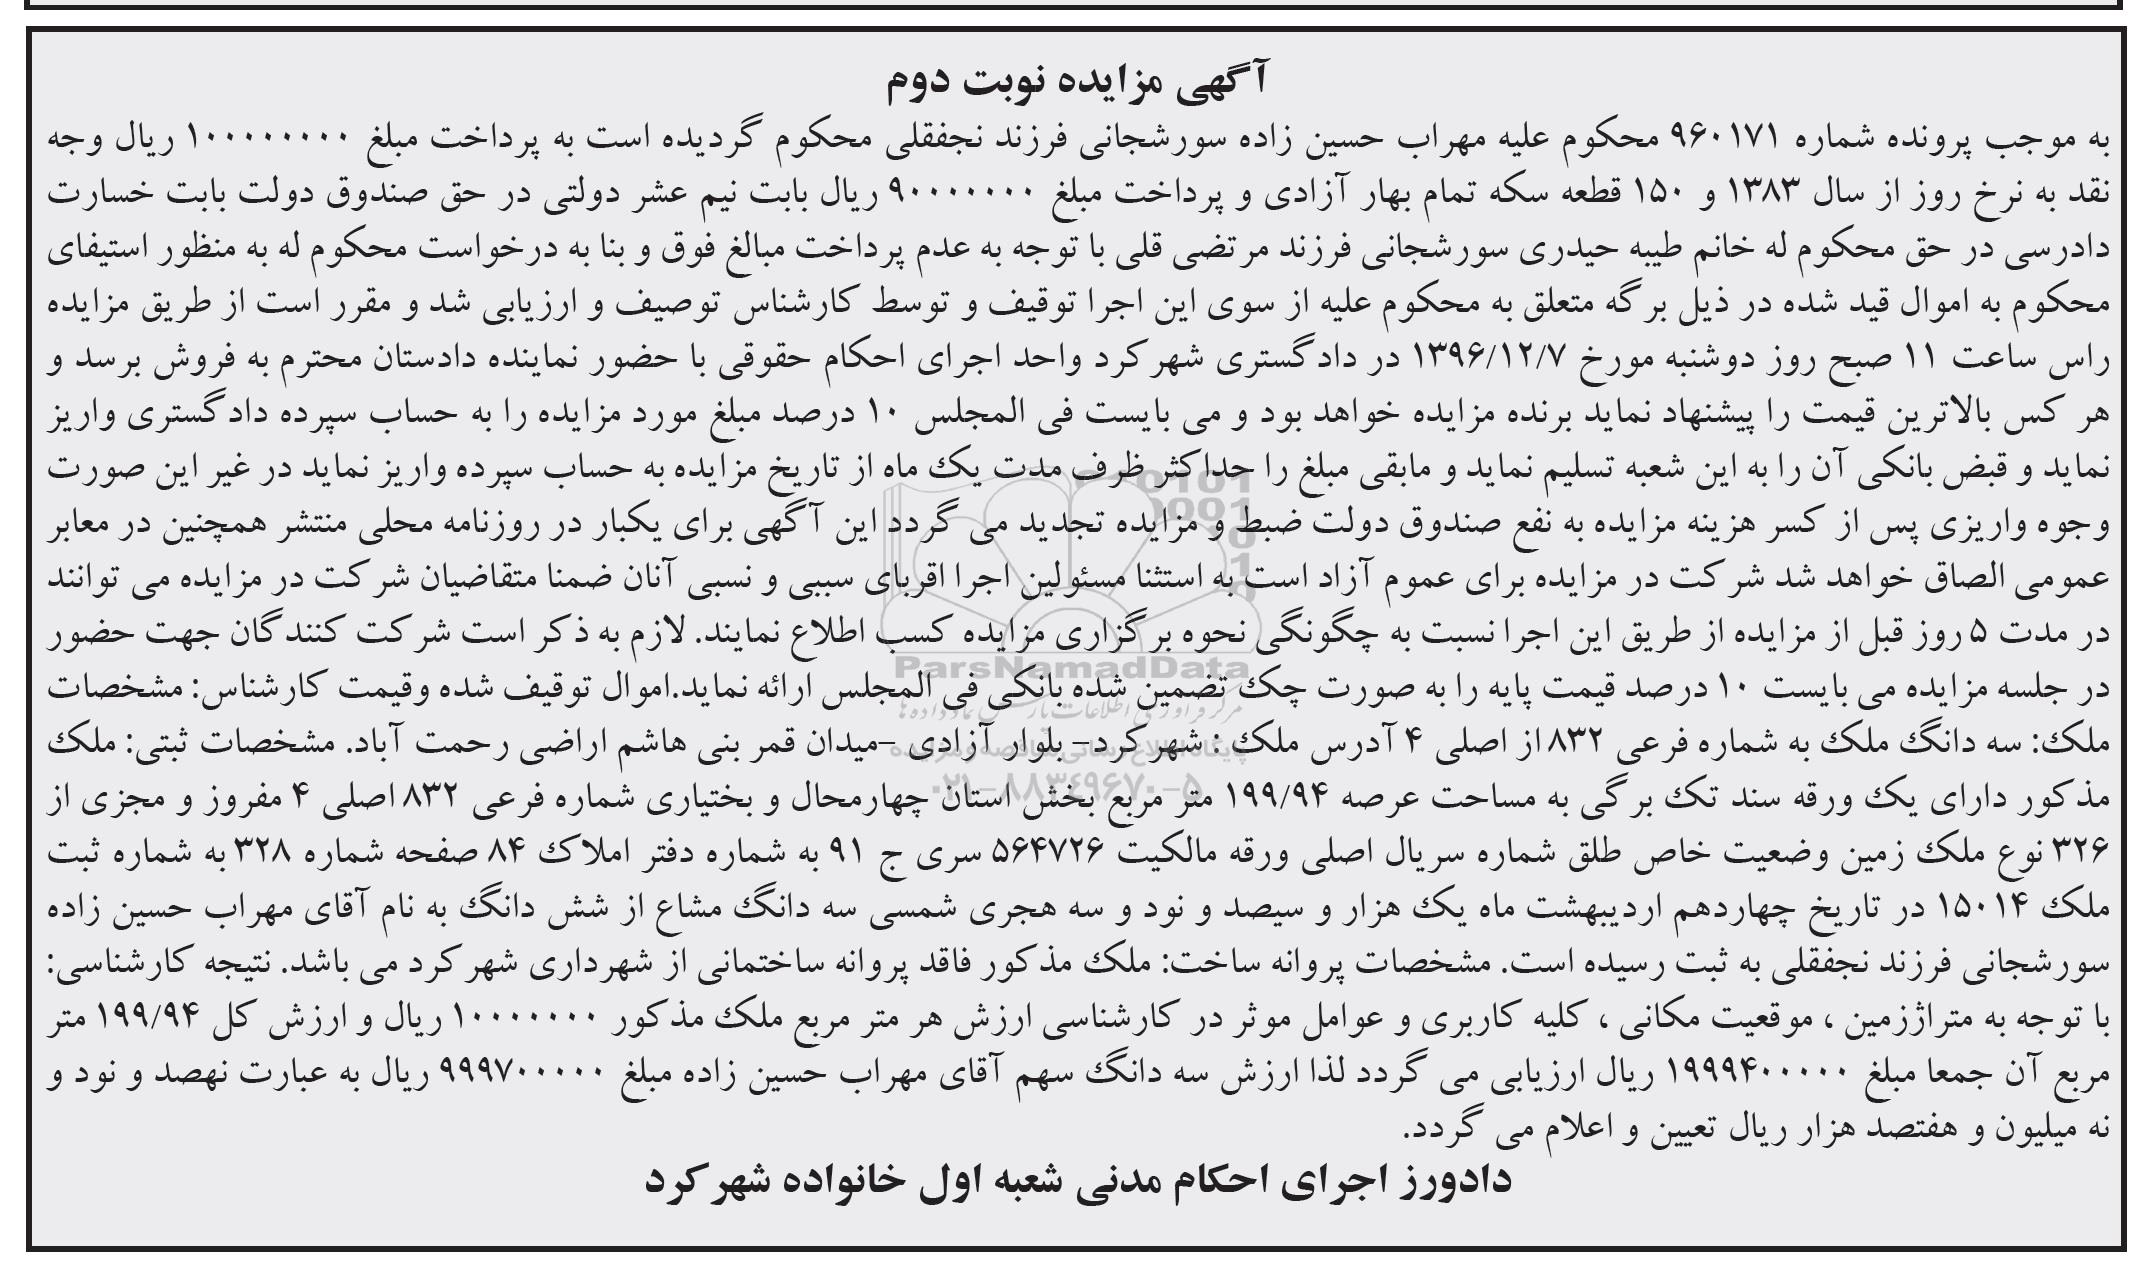 آگهی مزایده نوبت دوم
به موجب پرونده شماره ۹۶۰۱۷۱ محکوم علیه مهراب حسین زاده سورشجانی فرزند نجفقلی محکوم گردیده است به پرداخت مبلغ ۱۰۰۰۰۰۰۰۰ ریال وجه
نقد به نرخ روز از سال ۱۳۸۳ و ۱۵۰ قطعه سکه تمام بهار آزادی و پرداخت مبلغ ۹۰۰۰۰۰۰۰ ریال بابت نیم عشر دولتی در حق صندوق دولت بابت خسارت
دادرسی در حق محکوم له خانم طیبه حیدری سورشجانی فرزند مرتضی قلی با توجه به عدم پرداخت مبالغ فوق و بنا به درخواست محکوم له به منظور استیفای
محکوم به اموال قید شده در ذیل برگه متعلق به محکوم علیه از سوی این اجرا توقیف و توسط کارشناس توصیف و ارزیابی شد و مقرر است از طریق مزایده
راس ساعت ۱۱ صبح روز دوشنبه مورخ ۱۳۹۶/۱۲/۷ در دادگستری شهرکرد واحد اجرای احکام حقوقی با حضور نماینده دادستان محترم به فروش برسد و
هر کس بالاترین قیمت را پیشنهاد نماید برنده مزایده خواهد بود و می بایست فی المجلس ۱۰ درصد مبلغ مورد مزایده را به حساب سپرده دادگستری واریز
نماید و قبض بانکی آن را به این شعبه تسلیم نماید و مابقی مبلغ را حداکثر ظرف مدت یک ماه از تاریخ مزایده به حساب سپرده واریز نماید در غیر این صورت
وجوه واریزی پس از کسر هزینه مزایده به نفع صندوق دولت ضبط و مزایده تجدید می گردد این آگهی برای یکبار در روزنامه محلی منتشر همچنین در معابر
عمومی الصاق خواهد شد شرکت در مزایده برای عموم آزاد است به استثنا مسئولین اجرا اقربای سببی و نسبی آنان ضمنا متقاضیان شرکت در مزایده می توانند
در مدت ۵ روز قبل از مزایده از طریق این اجرا نسبت به چگونگی نحوه برگزاری مزایده کسب اطلاع نمایند. لازم به ذکر است شرکت کنندگان جهت حضور
در جلسه مزایده می بایست ۱۰ درصد قیمت پایه را به صورت چک تضمین شده بانکی فی المجلس ارائه نماید.اموال توقیف شده وقیمت کارشناس: مشخصات
ملک: سه دانگ ملک به شماره فرعی ۸۳۲ از اصلی ۴ آدرس ملک : شهرکرد– بلوار آزادی –میدان قمر بنی هاشم اراضی رحمت آباد. مشخصات ثبتی: ملک
مذکور دارای یک ورقه سند تک برگی به مساحت عرصه ۱۹۹/۹۴ متر مربع بخش استان چهارمحال و بختیاری شماره فرعی ۸۳۲ اصلی ۴ مفروز و مجزی از
۳۲۶ نوع ملک زمین وضعیت خاص طلق شماره سریال اصلی ورقه مالکیت ۵۶۴۷۲۶ سری ج ۹۱ به شماره دفتر املاک ۸۴ صفحه شماره ۳۲۸ به شماره ثبت
ملک ۱۵۰۱۴ در تاریخ چهاردهم اردیبهشت ماه یک هزار و سیصد و نود و سه هجری شمسی سه دانگ مشاع از شش دانگ به نام آقای مهراب حسین زاده
سورشجانی فرزند نجفقلی به ثبت رسیده است. مشخصات پروانه ساخت: ملک مذکور فاقد پروانه ساختمانی از شهرداری شهرکرد می باشد. نتیجه کارشناسی:
با توجه به متراژزمین ، موقعیت مکانی ، کلیه کاربری و عوامل موثر در کارشناسی ارزش هر متر مربع ملک مذکور ۱۰۰۰۰۰۰۰ ریال و ارزش کل ۱۹۹/۹۴ متر
مربع آن جمعا مبلغ ۱۹۹۹۴۰۰۰۰۰ ریال ارزیابی می گردد لذا ارزش سه دانگ سهم آقای مهراب حسین زاده مبلغ ۹۹۹۷۰۰۰۰۰ ریال به عبارت نهصد و نود و
نه میلیون و هفتصد هزار ریال تعیین و اعلام می گردد.
دادورز اجرای احکام مدنی شعبه اول خانواده شهرکرد
ParsNamadData
پایگاه اطلاع رسانی مناقصه و مزایده
۰۲۱–۸۸۳۴۹۶۷۰–۵